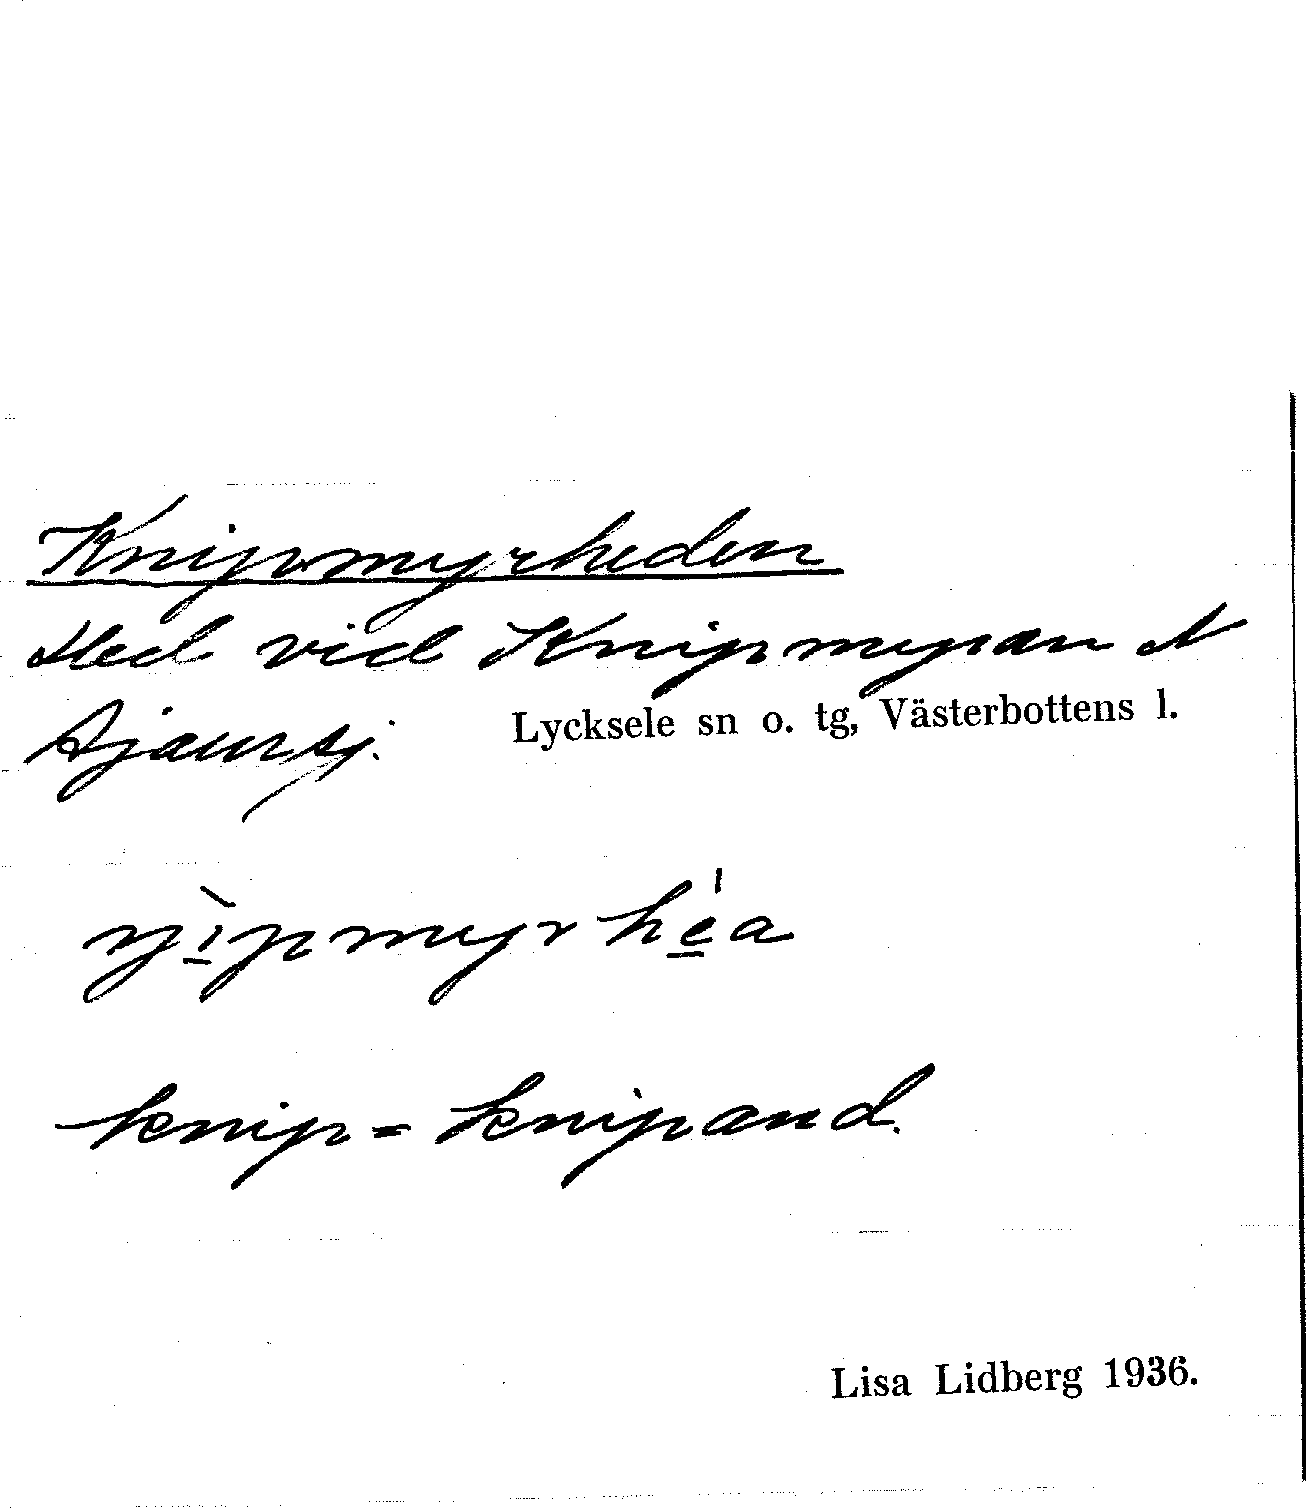 Knipmyrheden
Hed vid Knipmyran N
Ajaursj.
Lycksele sn o. tg, Västerbottens l.
knip = knipand.
Lisa Lidberg 1936.